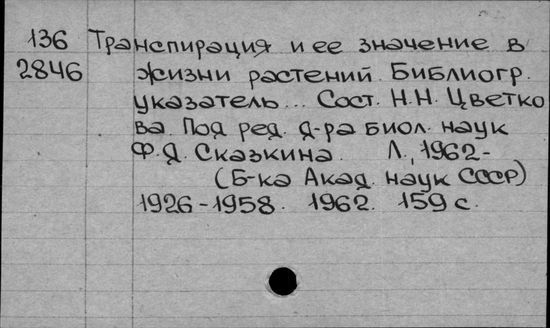 136 Транспирация и ее значение в
2846 жизни растений. Библиогр.
указатель... Сост. Н.Н. Цветко
ва. Под ред. д-ра биол. наук
Ф.Д. Сказкина. Л., 1962-
(Б-ка Акад. наук СССР)
1926-1958. 1962. 159 с.